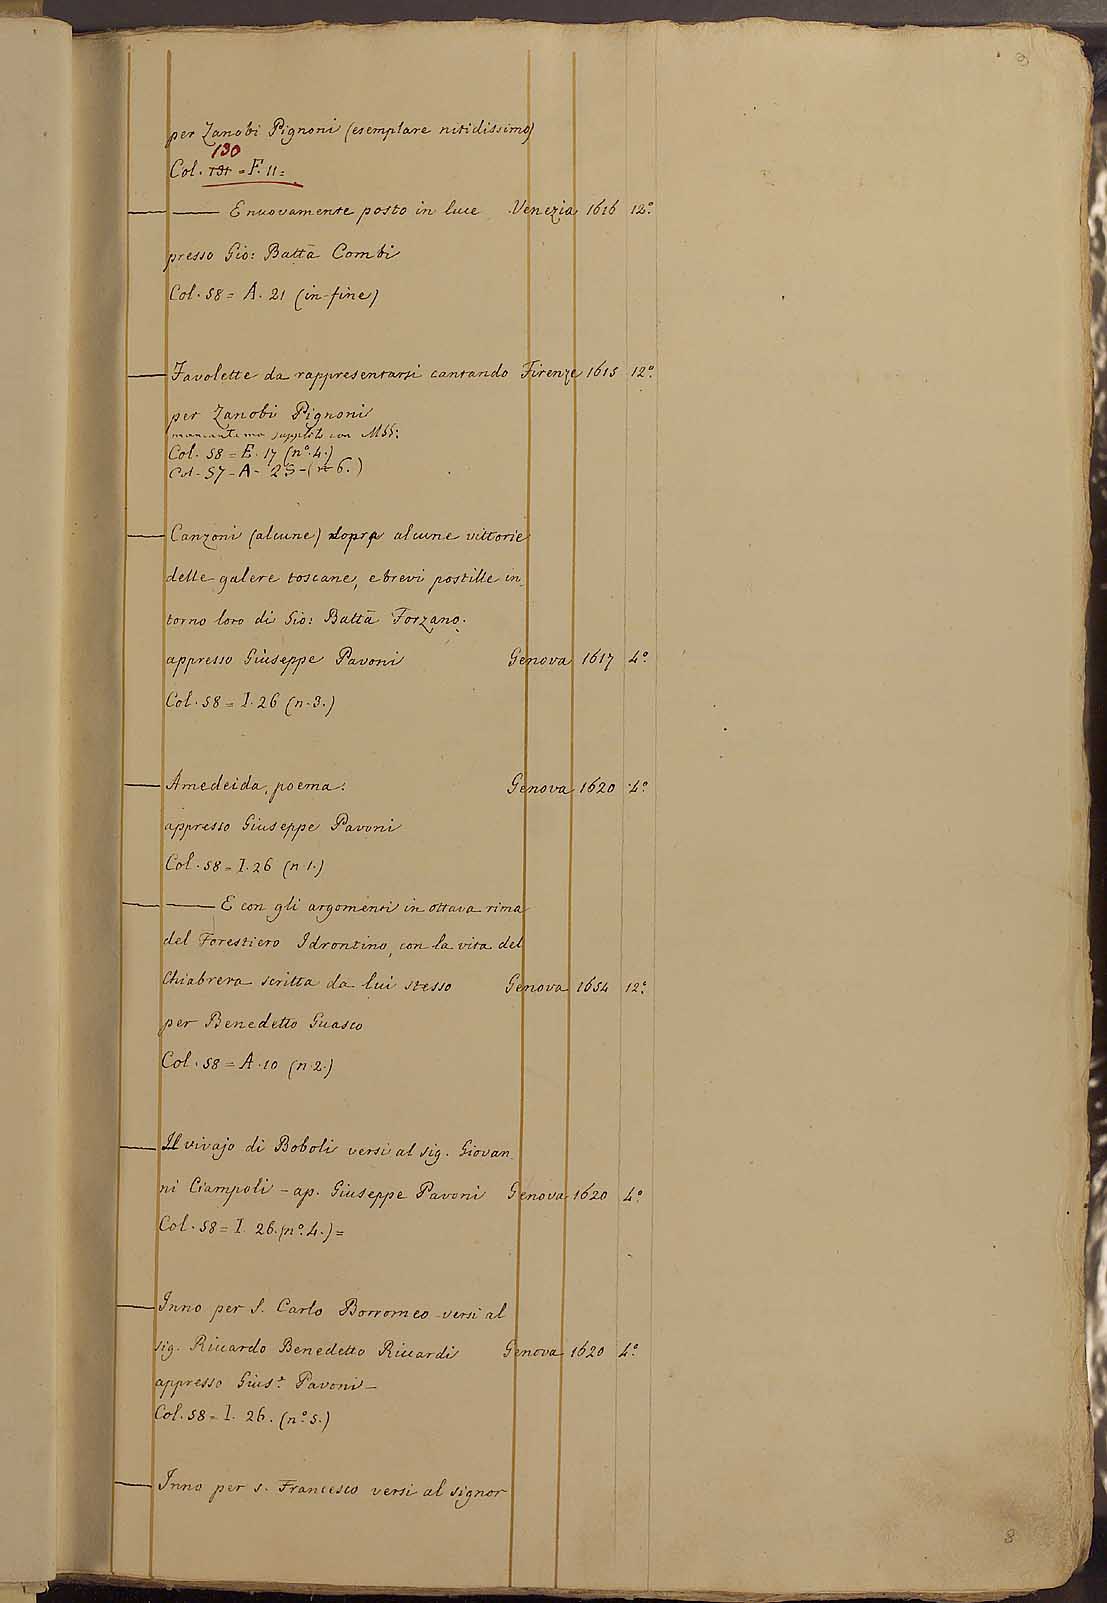 9
per Zanobi Pignoni (esemplare nitidissimo)
130
Col. 131 = F. 11 =
E nuovamente posto in luce Venezia 1616 12°.
presso Gio: Battā Combi
Col. 58 = A. 21 (in fine)
Favolette da rappresentarsi cantando Firenze 1615 12°.
per Zanobi Pignoni
mancante ma supplito con MSS:
Col. 58 = E. 17 (n°. 4.)
Col - 57 - A - 25 - (n 6.)
Canzoni (alcune) sopra alcune vittorie
delle galere toscane, e brevi postille in
torno loro di Gio: Battā Forzano.
appresso Giuseppe Pavoni Genova 1617 4°.
Col. 58 = I. 26 (n. 3.)
Amedeida, poema: Genova 1620 4°.
appresso Giuseppe Pavoni
Col. 58 = I. 26 (n. 1.)
E con gli argomenti in ottava rima
del Forestiero Idrontino, con la vita del
Chiabrera scritta da lui stesso Genova 1654 12°.
per Benedetto Guasco
Col. 58 = A. 10 (n. 2.)
Il vivajo di Boboli versi al sig. Giovan
ni Ciampoli - ap. Giuseppe Pavoni Genova 1620 4°.
Col. 58 = I. 26. (n°. 4.) =
Inno per S. Carlo Borromeo - versi al
sig. Riccardo Benedetto Riccardi Genova 1620 4°.
appresso Gius.e Pavoni -
Col. 58 = I. 26. (n°. 5.)
Inno per s. Francesco versi al signor
8